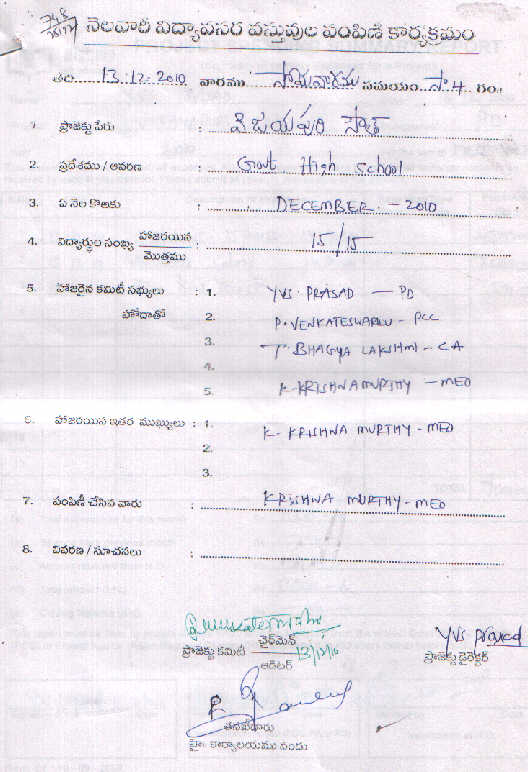 348
నెలవారీ విద్యావసర వస్తువుల పంపిణీ కార్యక్రమం
తేది 13.12.2010 వారము సోమవారము సమయం సా.4. గం॥
1. ప్రాజెక్టు పేరు : విజయపురి సౌత్
2. ప్రదేశము / ఆవరణ : Govt High School
3. ఏ నెల కొఱకు : DECEMBER - 2010
4. విద్యార్థుల సంఖ్య హాజరయిన / మొత్తము : 15/15
5. హాజరైన కమిటీ సభ్యులు : 1. YVS. PRASAD - PD
హోదాతో 2. P. VENKATESWARLU - PCC
3. T. BHAGYA LAKSHMI - CA
4.
5. K. KRISHNA MURTHY - MEO
6. హాజరయిన ఇతర ముఖ్యులు : 1. K. KRISHNA MURTHY - MEO
2.
3.
7. పంపిణీ చేసిన వారు : KRISHNA MURTHY - MEO
8. వివరణ / సూచనలు :
ఛైర్మెన్
ప్రాజెక్టు కమిటీ 13/12/10
ఆడిటర్
YVS Prasad
ప్రాజెక్టు డైరెక్టర్
తనిఖీదారు
హై. కార్యాలయము నందు